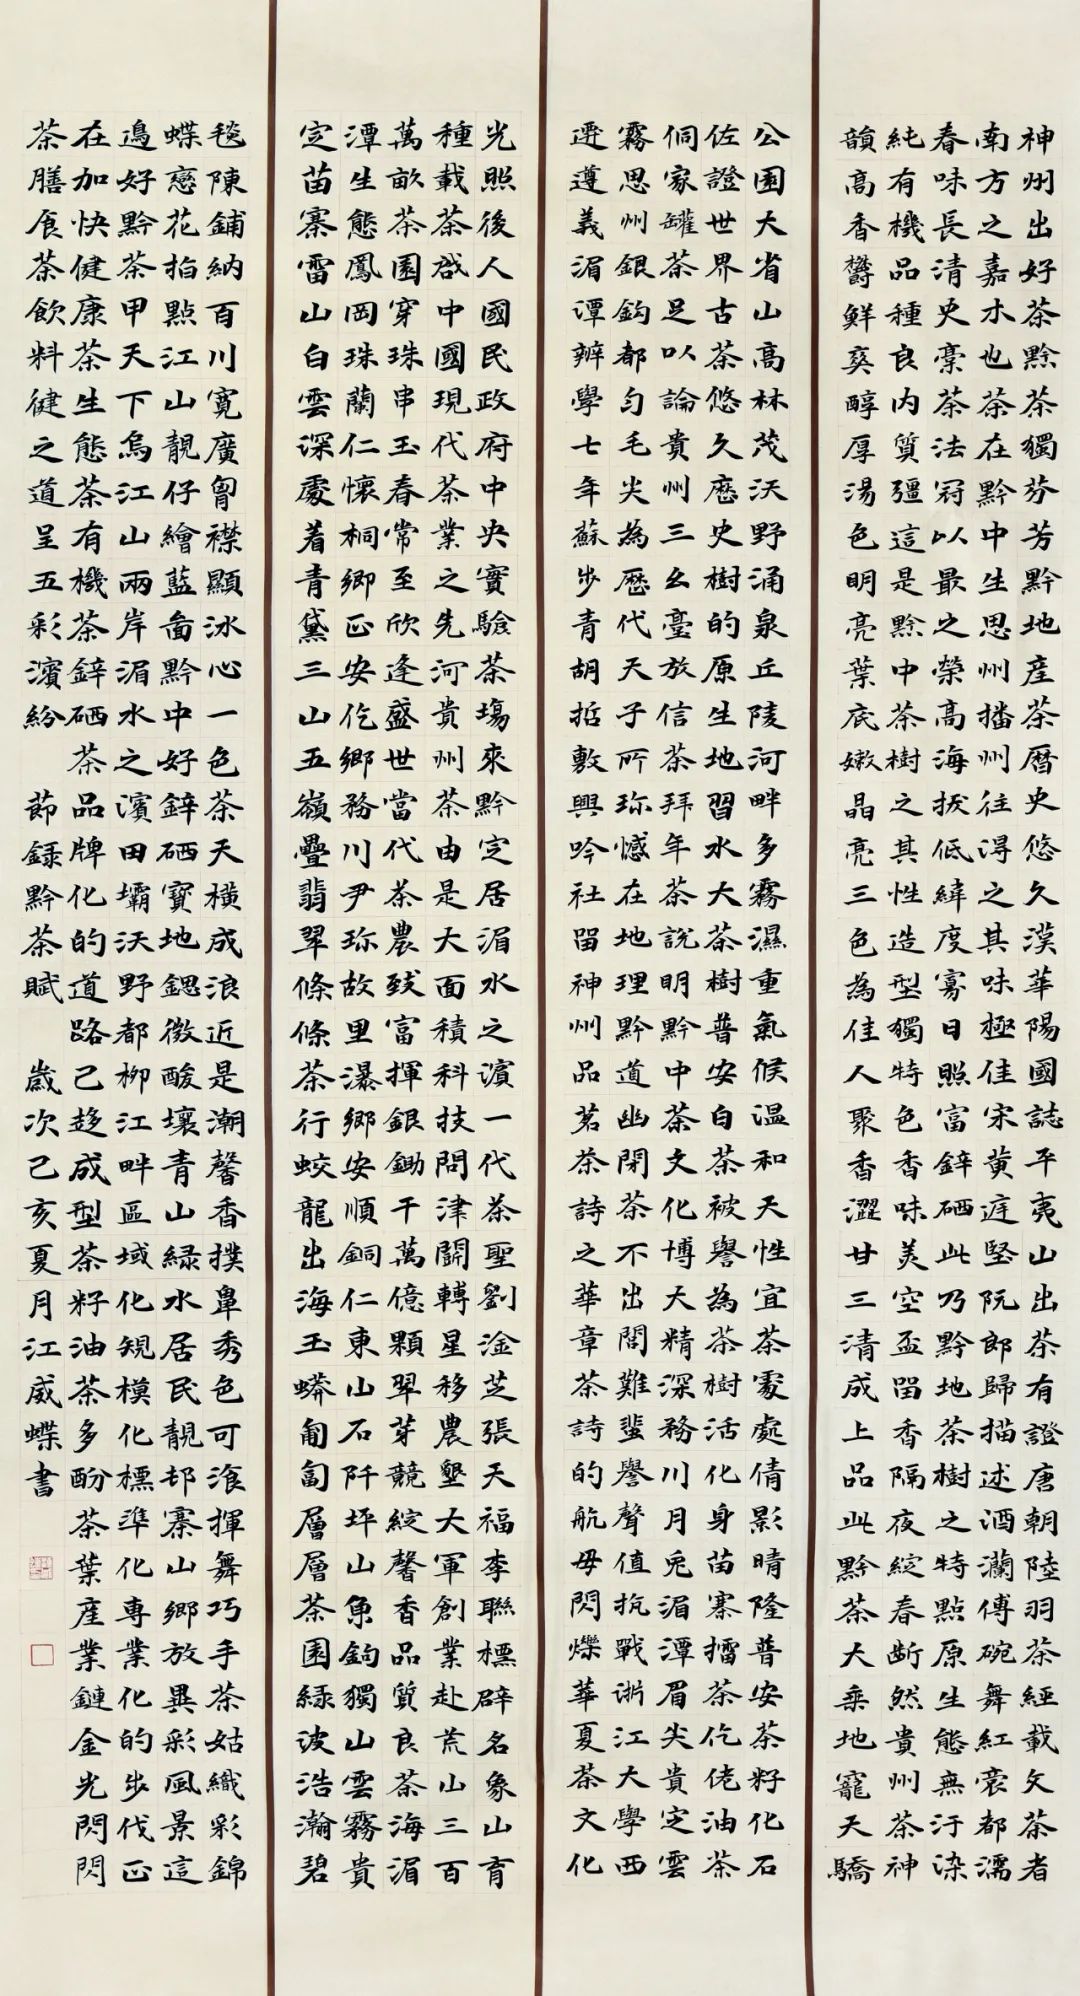 神州出好茶黔茶獨芬芳黔地産茶曆史悠久漢華陽國誌平夷山出茶有證唐朝陸羽茶經載文茶者
南方之嘉木也茶在黔中生思州播州往淂之其味極佳宋黄庭堅阮郎歸描述酒瀾傳碗舞紅裳都濡
春味長清史稾茶法冠以最之榮高海拔低緯度寡日照富鋅硒此乃黔地茶樹之特點原生態無汙染
純有機品種良内質彊這是黔中茶樹之其性造型獨特色香味美空盃留香隔夜綻春断然貴州茶神
韻高香欝鮮爽醇厚湯色明亮葉底嫩晶亮三色為佳人聚香澀甘三清成上品此黔茶大乘地寵天驕
公園大省山高林茂沃野涌泉丘陵河畔多霧濕重氣候温和天性宜茶䖏處倩影晴隆普安茶籽化石
佐證世界古茶悠久歷史樹的原生地習水大茶樹普安白茶被譽為茶樹活化身苗寨擂茶仡佬油茶
侗家罐茶足以論貴州三幺臺放信茶拜年茶說明黔中茶文化博大精深務川月兎湄潭眉尖貴定雲
霧思州銀鈎都匀毛尖為歷代天子所珎憾在地理黔道幽閉茶不出閣難蜚譽聲值抗戰浙江大學西
遷遵義湄潭辦學七年蘇步青胡哲敷興吟社留神州品茗茶詩之華章茶詩的航母閃爍華夏茶文化
光照後人國民政府中央實驗茶場來黔定居湄水之濱一代茶聖劉淦芝張天福李聯標辟名象山育
種載茶啟中國現代茶業之先河貴州茶由是大面積科技問津闢轉星移農墾大軍創業赴荒山三百
萬畝茶園穿珠串玉春常至欣逢盛世當代茶農致富揮銀鋤千萬億顆翠芽競綻馨香品質良茶海湄
潭生態鳳岡珠蘭仁懷桐鄉正安仡鄉務川尹珎故里瀑鄉安順銅仁東山石阡坪山魚鈎獨山雲霧貴
定苗寨雷山白雲深處着青黛三山五嶺疊翡翠條條茶行蛟龍出海玉蟒匍匐層層茶園緑波浩瀚碧
毯陳鋪納百川寛廣胷襟顯冰心一色茶天横成浪近是潮馨香撲鼻秀色可飡揮舞巧手茶姑織彩錦
蝶戀花拍點江山靚仔繪藍畵黔中好鋅硒寶地鍶微酸壤青山緑水居民靚邨寨山鄉放異彩風景這
邉好黔茶甲天下烏江山兩岸湄水之濱田壩沃野都柳江畔區域化規模化標準化専業化的步伐正
在加快健康茶生態茶有機茶鋅硒茶品牌化的道路已趍成型茶籽油茶多酚茶葉産業鏈金光閃閃
茶膳食茶飲料健之道呈五彩濱紛 節録黔茶賦 歲次己亥夏月江威蝶書